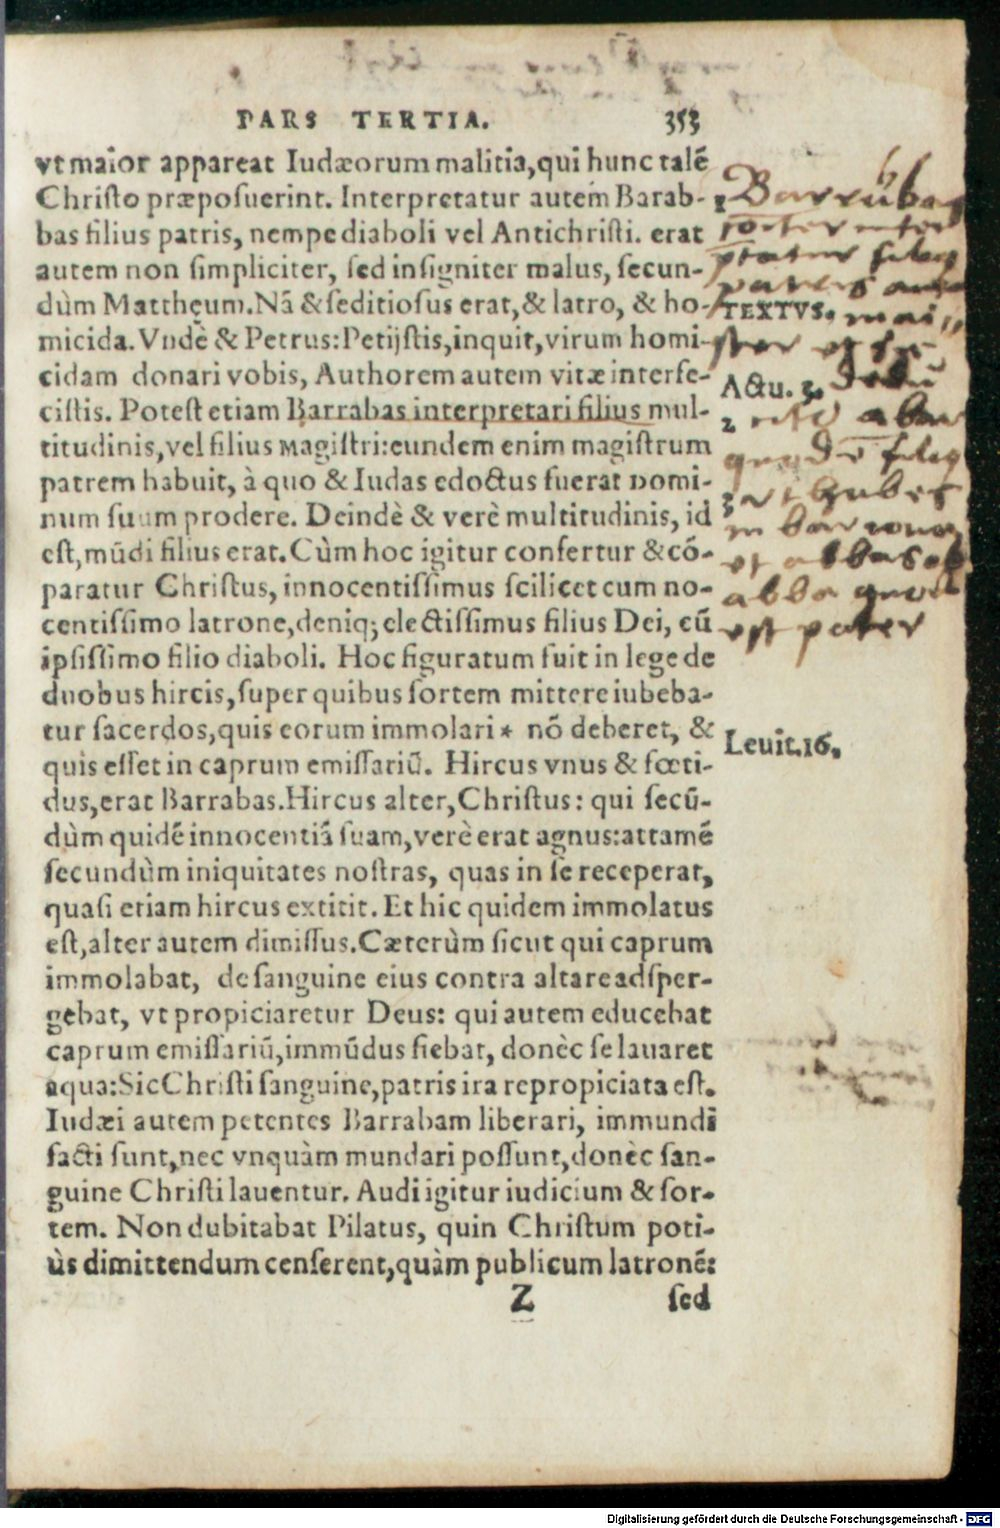 PARS TERTIA. 353
vt maior appareat Iudæorum malitia, qui hunc talẽ
Christo præposuerint. Interpretatur autem Barab-
bas filius patris, nempe diaboli vel Antichristi. erat
autem non simpliciter, sed insigniter malus, secun-
dùm Matthęum. Nã & seditiosus erat, & latro, & ho-
micida. Vndè & Petrus: Petijstis, inquit, virum homi-
cidam donari vobis, Authorem autem vitæ interfe-
cistis. Potest etiam Barrabas interpretari filius mul-
titudinis, vel filius magistri: eundem enim magistrum
patrem habuit, à quo & Iudas edoctus fuerat domi-
num suum prodere. Deindè & verè multitudinis, id
est, mũdi filius erat. Cùm hoc igitur confertur & cõ-
paratur Christus, innocentissimus scilicet cum no-
centissimo latrone, deniq; electissimus filius Dei, cũ
ipsissimo filio diaboli. Hoc figuratum fuit in lege de
duobus hircis, super quibus sortem mittere iubeba-
tur sacerdos, quis eorum immolari * nõ deberet, &
quis esset in caprum emissariũ. Hircus vnus & fœti-
dus, erat Barrabas. Hircus alter, Christus: qui secũ-
dùm quidẽ innocentiã suam, verè erat agnus: attamẽ
secundùm iniquitates nostras, quas in se receperat,
quasi etiam hircus extitit. Et hic quidem immolatus
est, alter autem dimissus. Cæterùm sicut qui caprum
immolabat, de sanguine eius contra altare adsper-
gebat, vt propiciaretur Deus: qui autem educebat
caprum emissariũ, immũdus fiebat, donèc se lauaret
aqua: Sic Christi sanguine, patris ira repropiciata est.
Iudæi autem petentes Barrabam liberari, immundi
facti sunt, nec vnquàm mundari possunt, donèc san-
guine Christi lauentur. Audi igitur iudicium & sor-
tem. Non dubitabat Pilatus, quin Christum poti-
ùs dimittendum censerent, quàm publicum latronẽ:
Z sed
TEXTVS.
Actu. 3.
abba
est pater
Leuit. 16.
Digitalisierung gefördert durch die Deutsche Forschungsgemeinschaft - DFG